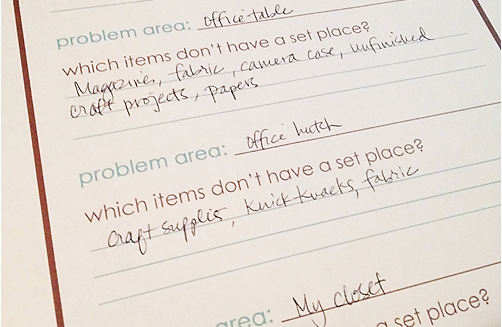 problem area: office table
which items don't have a set place?
Magazines, fabric, camera case, unfinished
craft projects, papers
problem area: office hutch
which items don't have a set place?
craft supplies, knick knacks, fabric
area: My closet
a set place?